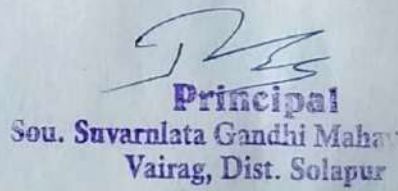 Principal
Sou. Suvarnlata Gandhi Maha
Vairag, Dist. Solapur